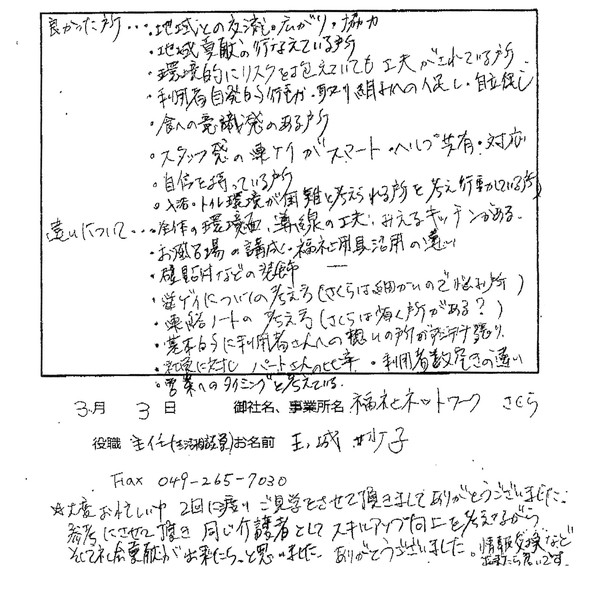 良かった所・・・・地域との交流。広がり、協力
・地域貢献の行なえている所
・環境的にリスクを抱えていても工夫がされている所
・利用者自発的行動・取り組みへの促し・自立促し
・食への意識のある所
・スタッフ発の連ケイがスマート・ヘルプ共有・対応
・自信を持っている所
・入浴・トイレ環境が困難と考えられる所を考え行動している所
違いについて・・・・全体の環境面、導線の工夫、みえるキッチンがある。
・お風呂場の構成・福祉用具活用の違い
・壁貼付などの装飾
・連ケイについての考え方(さくらは細かいので悩み所)
・連絡ノートの考え方(さくらは省く所がある?)
・基本的に利用者さんへの想いの所が
・社員に対し パートさんの比率・利用者数
の違い
・営業へのタイミングと考えている。
3月 3日 御社名、事業所名 福祉ネットワーク さくら
役職 主任(生活相談員) お名前 玉城 妙子
Fax 049-265-7030
☆大変お忙しい中 2回に渡り ご見学をさせて頂きまして ありがとうございました。
参考にさせて頂き 同じ介護者として スキルアップ向上を考えながら
そして社会貢献が出来たらと思いました。ありがとうございました。情報交換など
出来たら良いです。